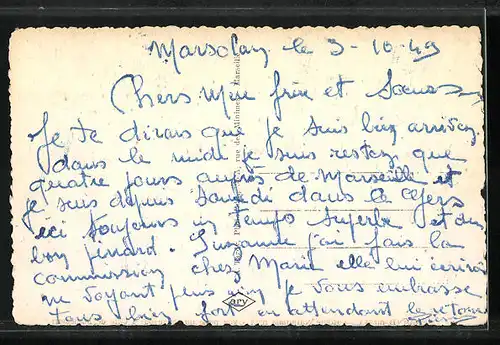 Marsolan le 3-10-49
Chers Mon frère et Soeurs
Je te dirais que je suis bien arrivez
dans le midi je suis restez que
quatre jours auprès de Marseille et
je suis depuis Samedi dans le Gers
ici toujours un temps superbe et du
bon pinard. Suzanne j'ai fais la
commission chez Marie elle lui écrira
ne voyant plus rien je vous embrasse
tous bien fort en attendant le retour